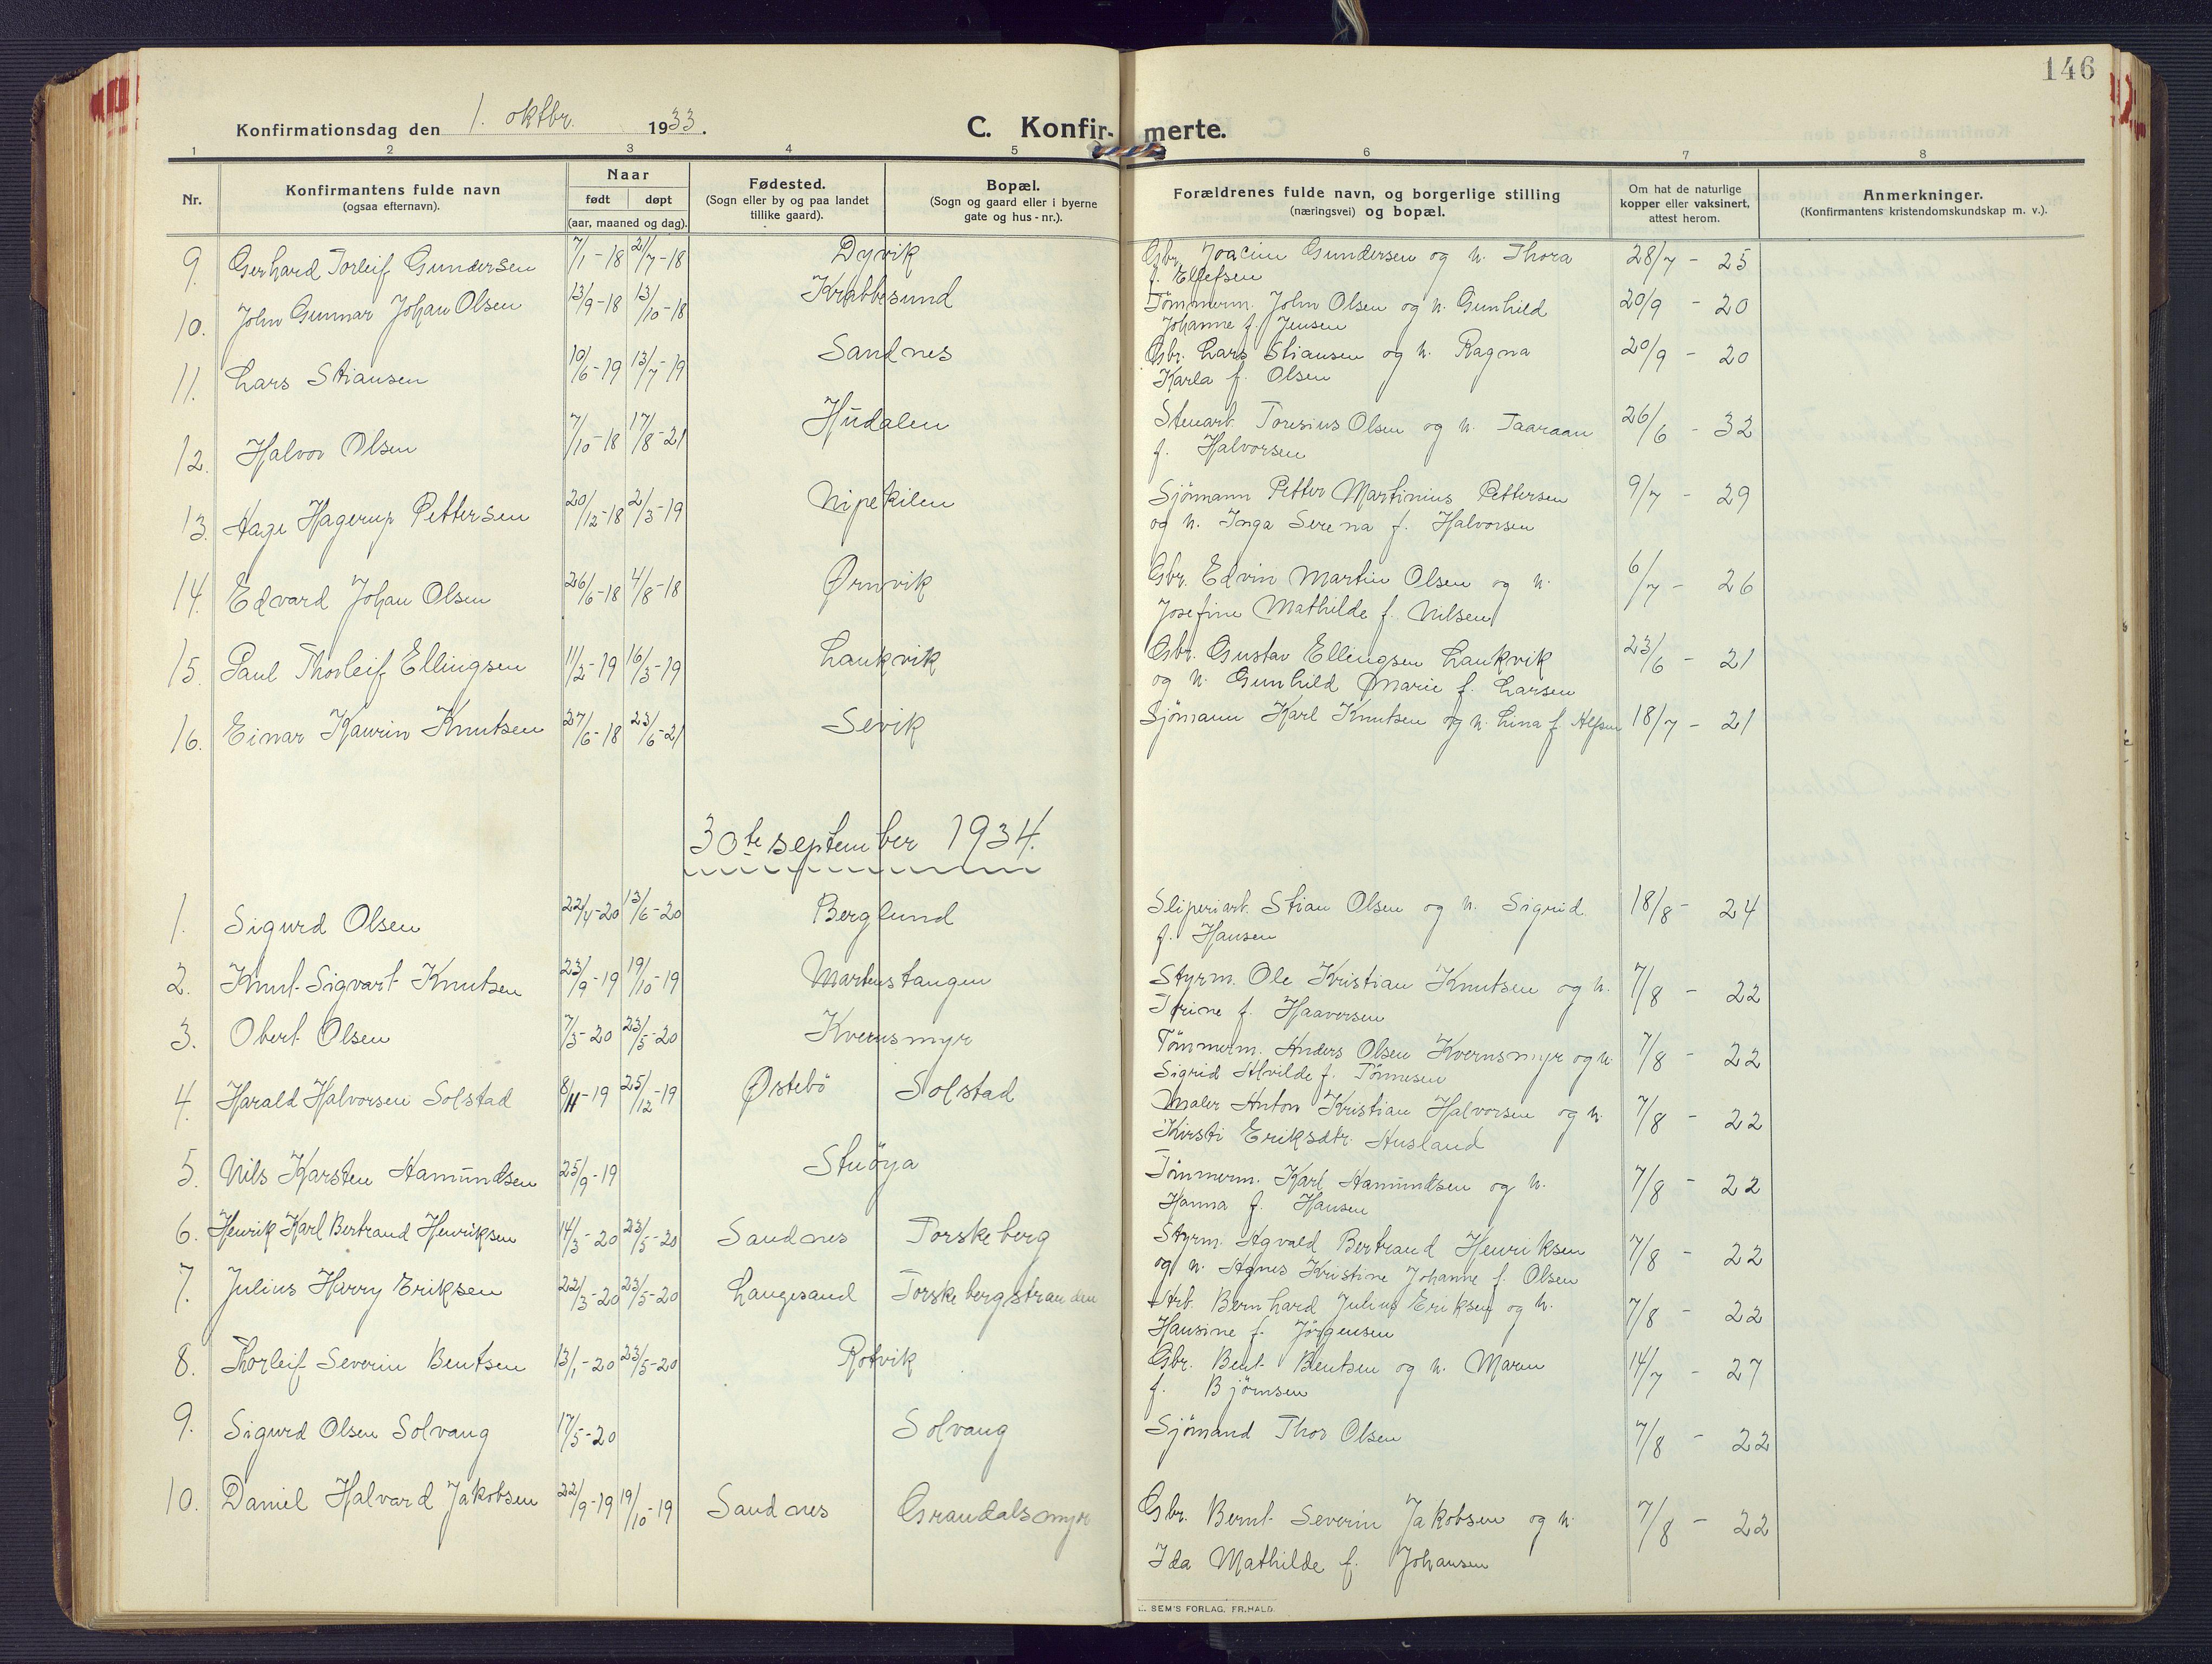 146
Konfirmationsdag den 1. oktbr. 1933.
C. Konfir- merte.
1 2 3 4 5 6 7 8
Nr.
Konfirmantens fulde navn
(ogsaa efternavn).
Naar
født døpt
(aar, maaned og dag).
Fødested.
(Sogn eller by og paa landet
tillike gaard).
Bopæl.
(Sogn og gaard eller i byerne
gate og hus-nr.).
Forældrenes fulde navn, og borgerlige stilling
(næringsvei) og bopæl.
Om hat de naturlige
kopper eller vaksinert,
attest herom.
Anmerkninger.
(Konfirmantens kristendomskundskap m. v.).
9. Gerhard Torleif Gundersen 7/1-18 21/7-18 Dyvik Gbr. Joacim Gundersen og h. Thora 28/7 - 25
f. Ellefsen
10. John Gunnar Johan Olsen 13/9-18 13/10-18 Krabbesund Tømmerm. John Olsen og h. Gunhild 20/9 - 20
Johanne f. Jensen
11. Lars Stiansen 10/6-19 13/7-19 Sandnes Gbr. Lars Stiansen og h. Ragna 20/9 - 20
Karla f. Olsen
12. Halvor Olsen 7/10-18 17/8-21 Hudalen Stenarb. Toresius Olsen og h. Taaraan 26/6 - 32
f. Halvorsen
13. Aage Hagerup Pettersen 20/12-18 2/3-19 Nipekilen Sjömann Petter Martinius Pettersen 9/7 - 29
og h. Inga Serena f. Halvorsen
14. Edvard Johan Olsen 26/6-18 4/8-18 Ørnvik Gbr. Edvin Martin Olsen og h. 6/7 - 26
Josefine Mathilde f. Nilsen
15. Paul Thorleif Ellingsen 11/2-19 16/3-19 Laukvik Gbr. Gustav Ellingsen Laukvik 23/6 - 21
og h. Gunhild Marie f. Larsen
16. Einar Kaurin Knutsen 27/6-18 23/6-21 Sevik Sjömann Karl Knutsen og h. Lina f. Alfsen 18/7 - 21
30te september 1934.
1. Sigurd Olsen 22/4-20 13/6-20 Berglund Sliperiarb. Stian Olsen og h. Sigrid 18/8 - 24
f. Hansen
2. Knut Sigvart Knutsen 23/9-19 19/10-19 Martenstangen Styrm. Ole Kristian Knutsen og h. 7/8 - 22
Trine f. Haaversen
3. Obert Olsen 7/3-20 23/5-20 Kvernsmyr Tömmerm. Anders Olsen Kvernsmyr og h. 7/8 - 22
Sigrid Alvilde f. Tönnesen
4. Harald Halvorsen Solstad 8/11-19 25/12-19 Østebö Solstad Maler Anton Kristian Halvorsen og h. 7/8 - 22
Kirsti Eriksdtr. Husland
5. Nils Karsten Hamundsen 25/9-19 Stuöya Tömmerm. Karl Hamundsen og h. 7/8 - 22
Hanna f. Hansen
6. Henrik Karl Bertrand Henriksen 14/3-20 23/5-20 Sandnes Torskeberg Styrm. Agvald Bertrand Henriksen 7/8 - 22
og h. Agnes Kristine Johanne f. Olsen
7. Julius Harry Eriksen 22/3-20 23/5-20 Langesand Torskebergstranden Arb. Bernhard Julius Eriksen og h. 7/8 - 22
Hansine f. Jörgensen
8. Thorleif Severin Bentsen 13/1-20 23/5-20 Rotvik Gbr. Bent Bentsen og h. Maren 14/7 - 27
f. Björnsen
9. Sigurd Olsen Solvang 17/5-20 Solvang Sjömand Thor Olsen 7/8 - 22
10. Daniel Halvard Jakobsen 22/9-19 19/10-19 Sandnes Grandalsmyr Gbr. Bernt Severin Jakobsen og h. 7/8 - 22
Ida Mathilde f. Johansen
SEM'S FORLAG, FR.HALD.